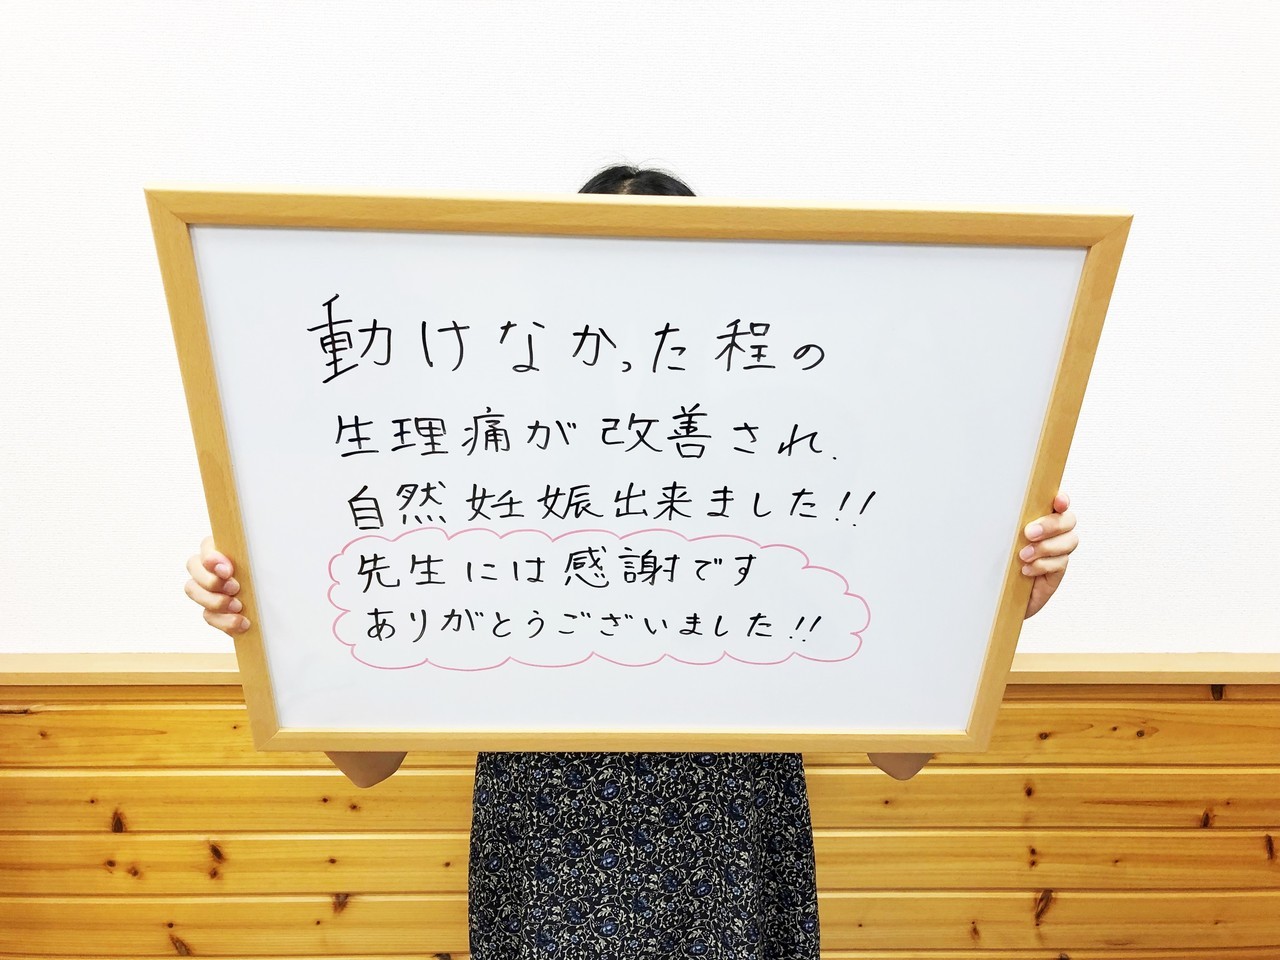 動けなかった程の
生理痛が改善され、
自然妊娠出来ました!!
先生には感謝です
ありがとうございました!!